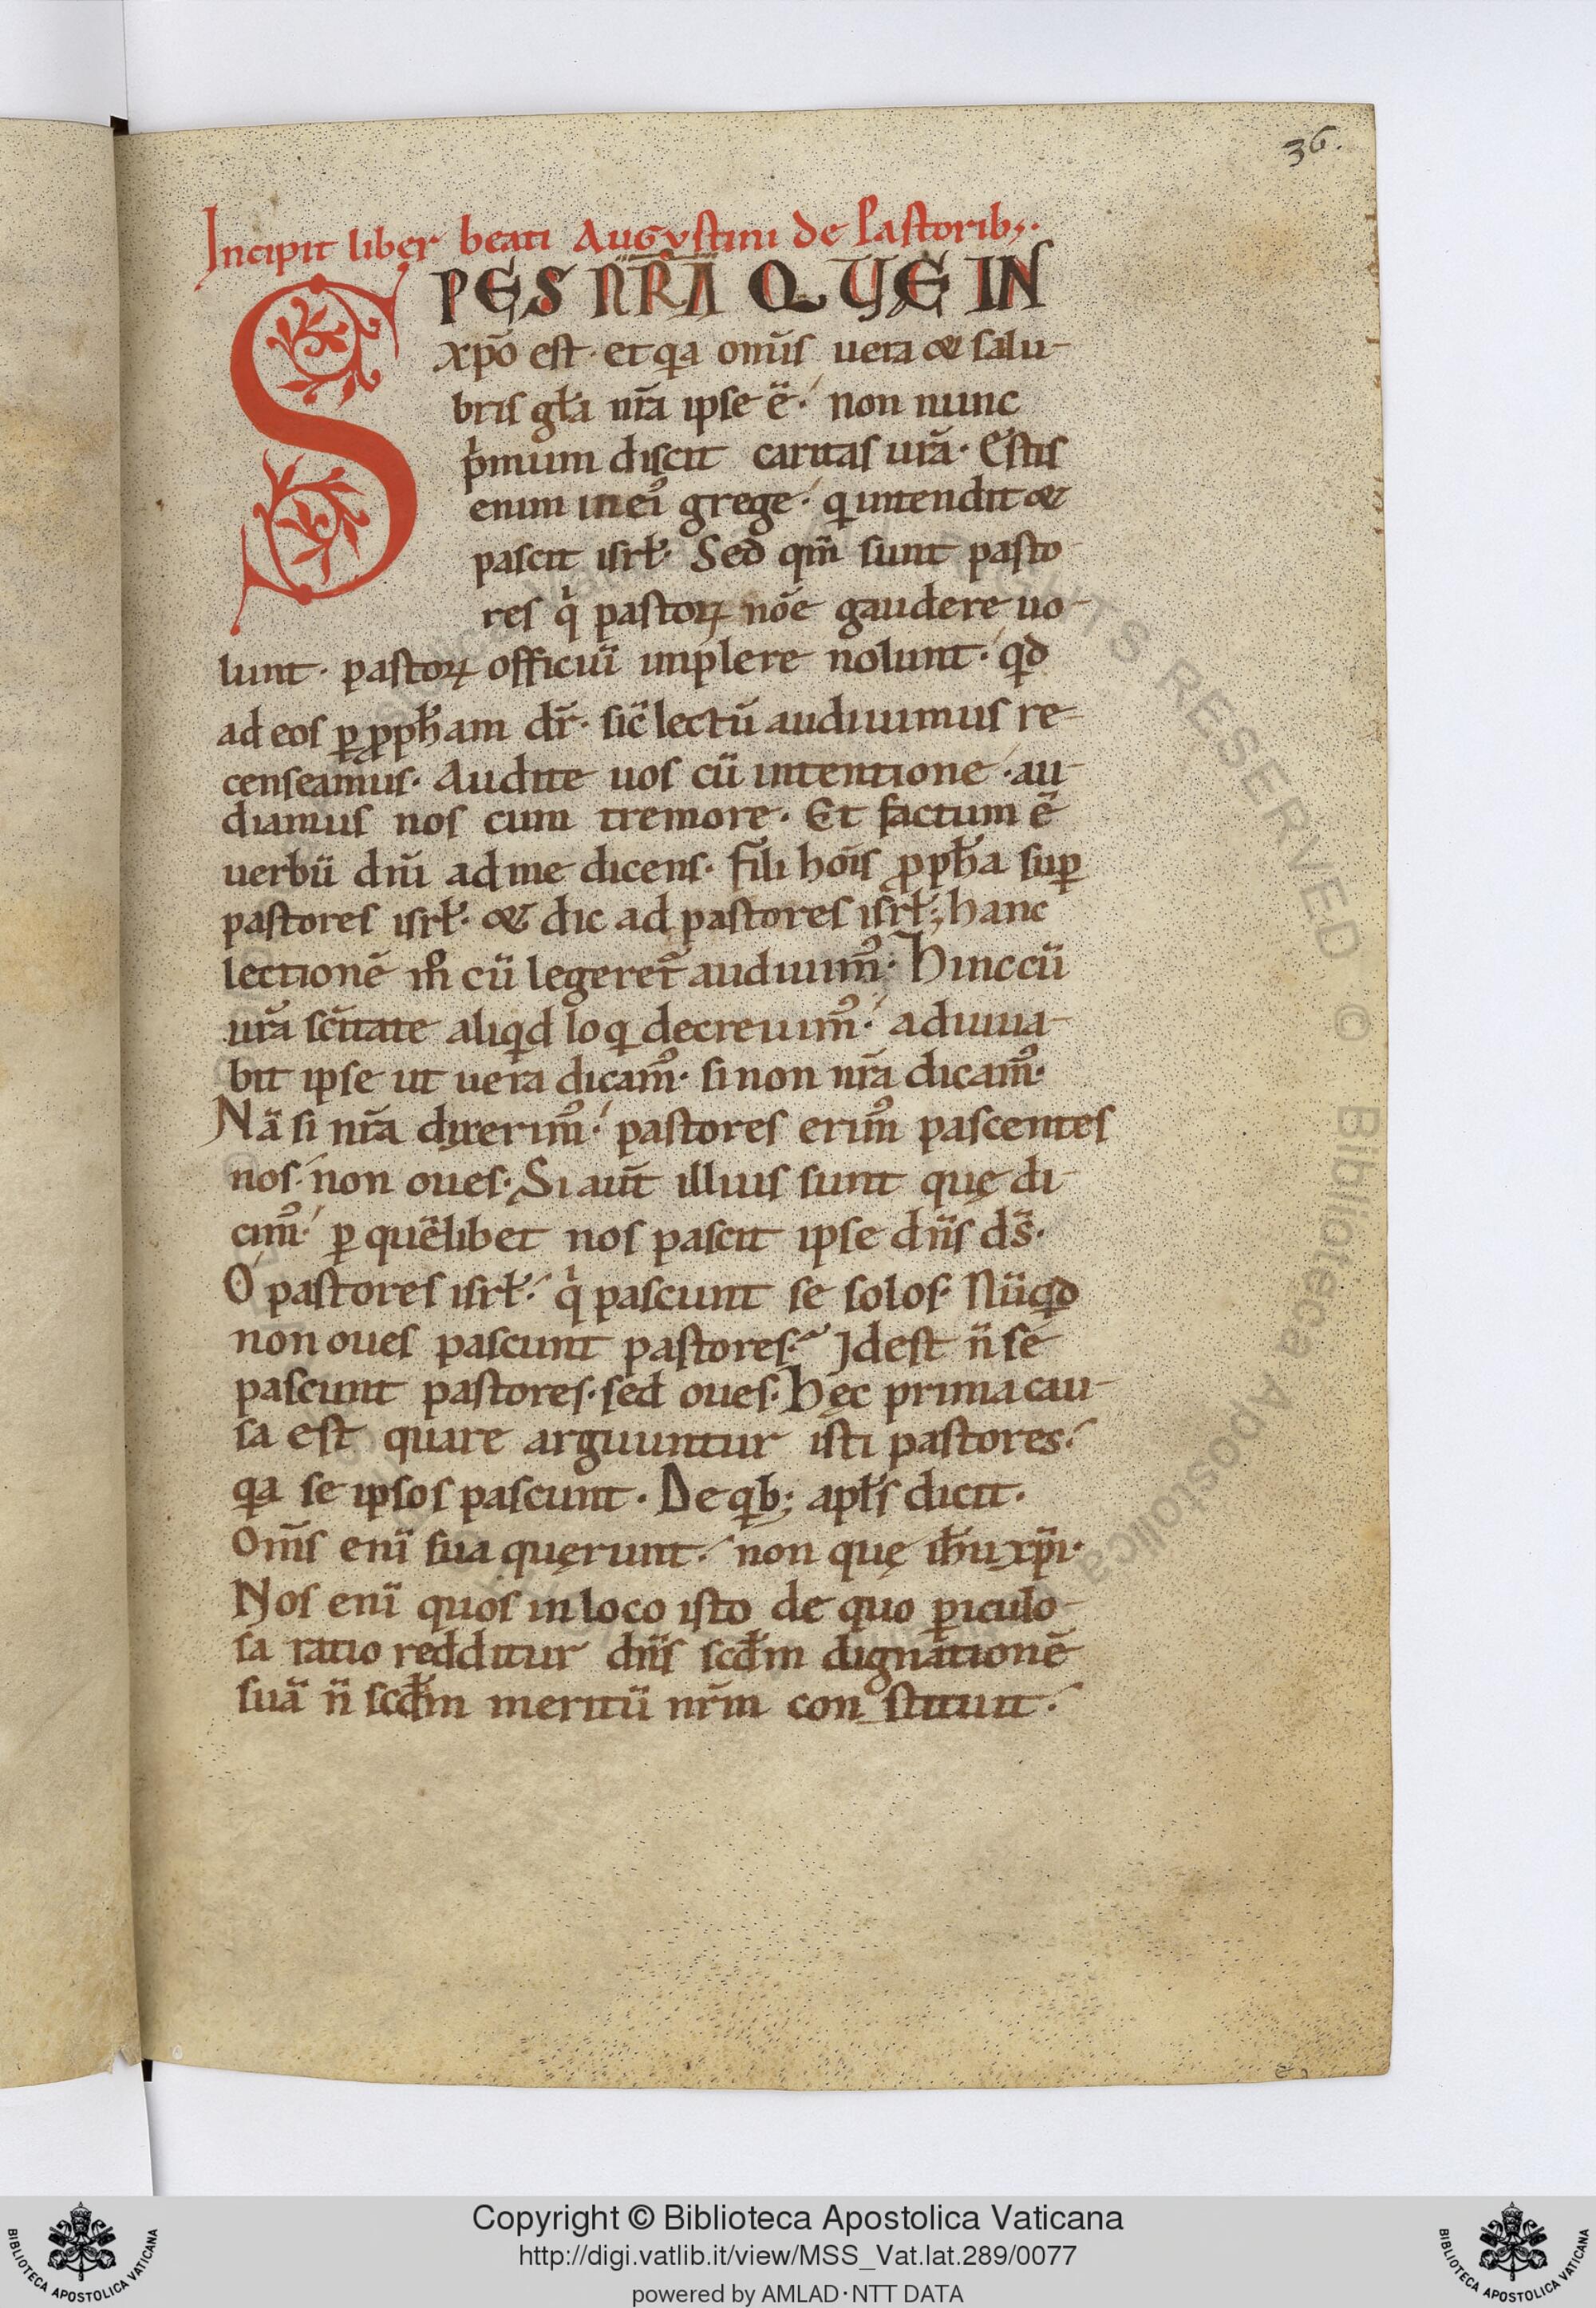 36.
Incipit liber beati Augustini de Pastorib;.
SPES NR̄A QUE IN
xp̄o est. et qa om̄is uera & salu-
bris gła nr̄a ipse ē. non nunc
p̍mum discit caritas ur̄a. Estis
enim in eiꝰ grege. q intendit &
pascit isrł. Sed qm̄ sunt pasto-
res q̍ pastoꝝ nōe gaudere uo-
lunt. pastoꝝ officiū implere nolunt. qd
ad eos ꝑ ꝓph̄am dr̄. sic̄ lectū audiuimus re-
censeamus. Audite uos cū intentione. au-
diamus nos cum tremore. Et factum ē
uerbū dn̄i ad me dicens. fili hoīs ꝓph̄a suꝑ
pastores isrł. & dic ad pastores isrł; hanc
lectionē m̊ cū legeret᷑ audiuimꝰ. Hinc cū
ur̄a sc̄itate aliqd loq decreuimꝰ. adiuua-
bit ipse ut uera dicamꝰ. si non nr̄a dicamꝰ.
Nā si nr̄a dixerimꝰ. pastores erimꝰ pascentes
nos. non oues. Si aut̄ illius sunt quę di-
cimꝰ. ꝑ quēlibet nos pascit ipse dn̄s ds̄.
O pastores isrł. q̍ pascunt se solos. Nūqd
non oues pascunt pastores. Idest n̄ se
pascunt pastores. sed oues. Hęc prima cau-
sa est quare arguuntur isti pastores.
qa se ipsos pascunt. De qb; apłs dicit.
Om̄s enī sua quęrunt. non quę ih̄u xp̄i.
Nos enī quos in loco isto de quo ꝑiculo-
sa ratio redditur dn̄s scd̄m dignationē
suā n̄ scd̄m meritū nr̄m constituit.
RIGHTS RESERVED © Biblioteca Apostolica
Copyright © Biblioteca Apostolica Vaticana
http://digi.vatlib.it/view/MSS_Vat.lat.289/0077
powered by AMLAD·NTT DATA
BIBLIOTECA APOSTOLICA VATICANA
BIBLIOTECA APOSTOLICA VATICANA